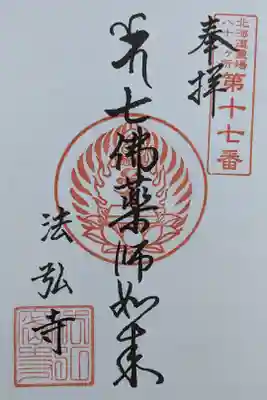 北海道霊場
八十八ヶ所
第十七番
奉拝
七佛薬师如来
法弘寺